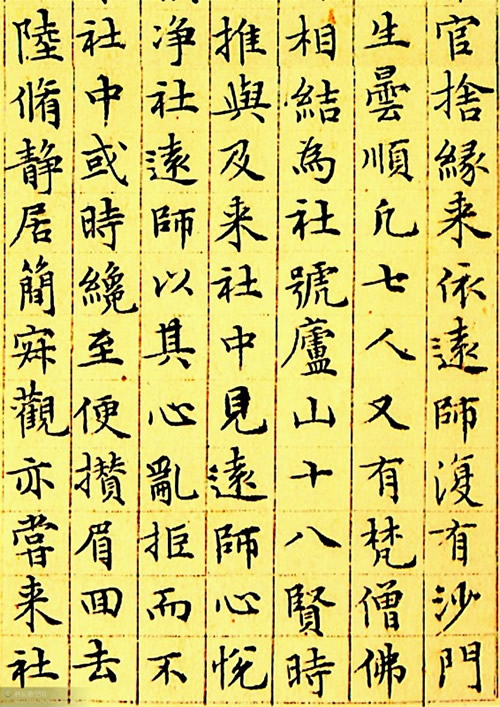 官捨緣来依遠師復有沙門
生曇順凡七人又有梵僧佛
相結為社號廬山十八賢時
推與及来社中見遠師心悅
净社遠師以其心亂拒而不
社中或時纔至便攢眉回去
陸脩静居簡寂觀亦嘗来社